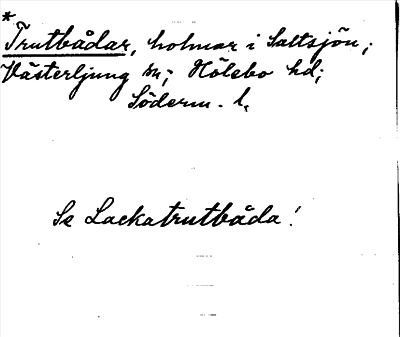 *
Trutbådar, holmar i Saltsjön;
Västerljung sn; Hölebo hd;
Söderm. l.
Se Lackatrutbåda!